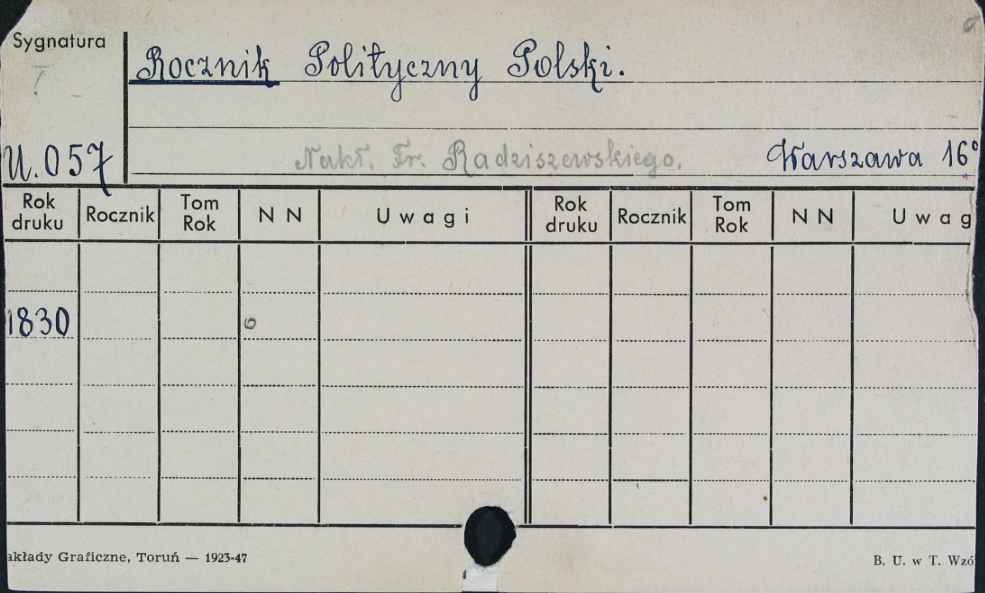 Sygnatura
Rocznik Polityczny Polski.
U.057
Nakł. Fr. Radziszewskiego.
Warszawa 16°
Rok druku Rocznik Tom Rok N N Uwagi Rok druku Rocznik Tom Rok N N Uwag
1830
akłady Graficzne, Toruń — 1923-47
B. U. w T. Wzó